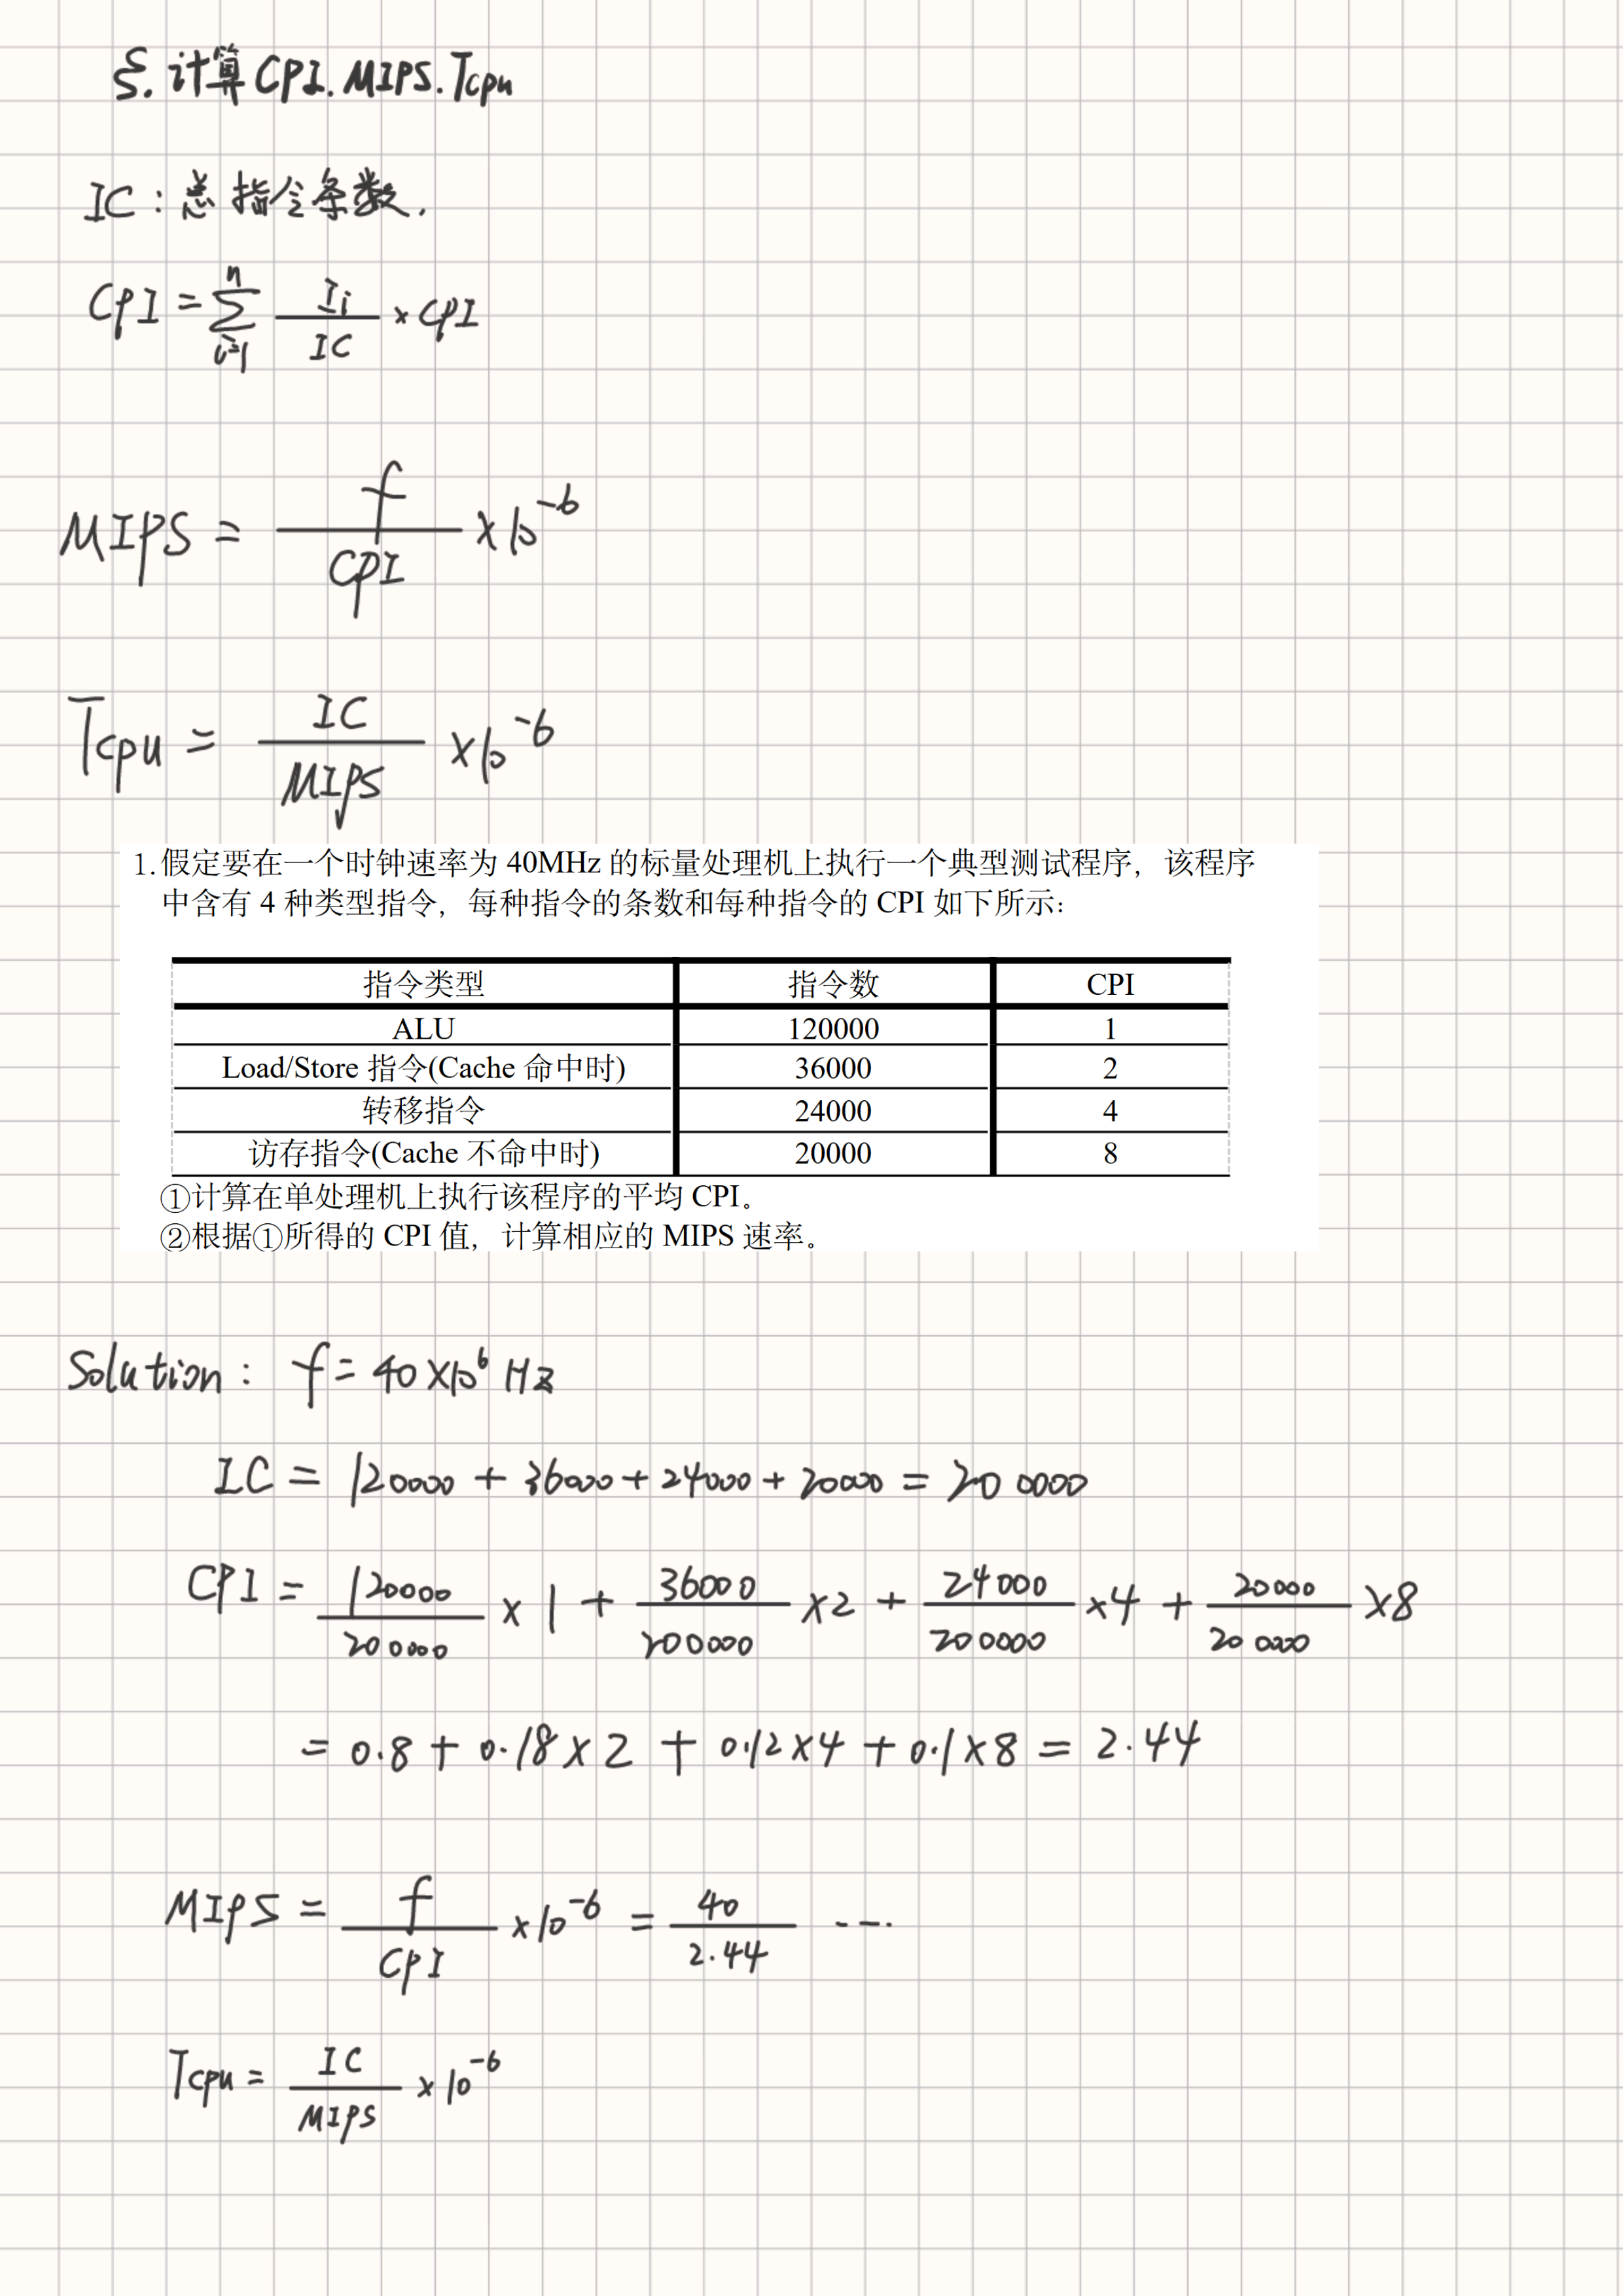 5. 计算CPI. MIPS. Tcpu
IC : 总指令条数.
CPI = ∑ⁿᵢ₌₁ Iᵢ/IC × CPI
MIPS = f/CPI ×10⁻⁶
Tcpu = IC/MIPS ×10⁻⁶
1. 假定要在一个时钟速率为 40MHz 的标量处理机上执行一个典型测试程序，该程序
中含有 4 种类型指令，每种指令的条数和每种指令的 CPI 如下所示：
指令类型 指令数 CPI
ALU 120000 1
Load/Store 指令(Cache 命中时) 36000 2
转移指令 24000 4
访存指令(Cache 不命中时) 20000 8
①计算在单处理机上执行该程序的平均 CPI。
②根据①所得的 CPI 值，计算相应的 MIPS 速率。
Solution : f = 40×10⁶ Hz
IC = 120000 + 36000 + 24000 + 20000 = 200000
CPI = 120000/200000 × 1 + 36000/200000 ×2 + 24000/200000 ×4 + 20000/200000 ×8
= 0.8 + 0.18×2 + 0.12×4 + 0.1×8 = 2.44
MIPS = f/CPI ×10⁻⁶ = 40/2.44 ....
Tcpu = IC/MIPS ×10⁻⁶